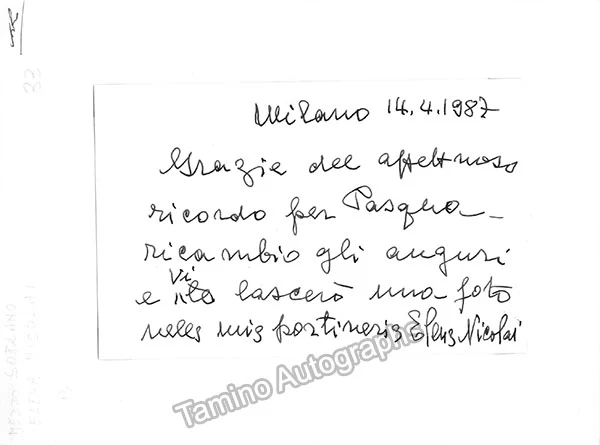 Milano 14.4.1987
Grazie del affettuoso
ricordo per Pasqua_
ricambio gli auguri
e vi lascerò una foto
nella mia portineria Elena Nicolai
Tamino Autographs
33
MEZZO SOPRANO
ELENA NICOLAI